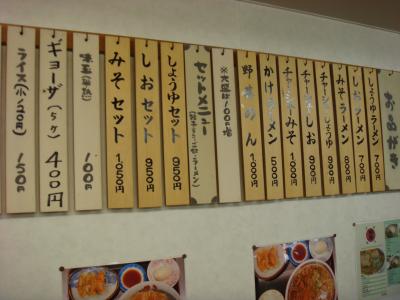 おしながき
しょうゆラーメン 700円
しおラーメン 700円
みそラーメン 800円
チャーシューしょうゆ 900円
チャーシューしお 900円
チャーシューみそ 1,000円
かけラーメン 500円
野菜めん 900円
※大盛は100円増
セットメニュー
しょうゆセット 950円
しおセット 950円
みそセット 1,050円
味玉(半熟) 100円
ギョーザ(5ヶ) 400円
ライス 150円